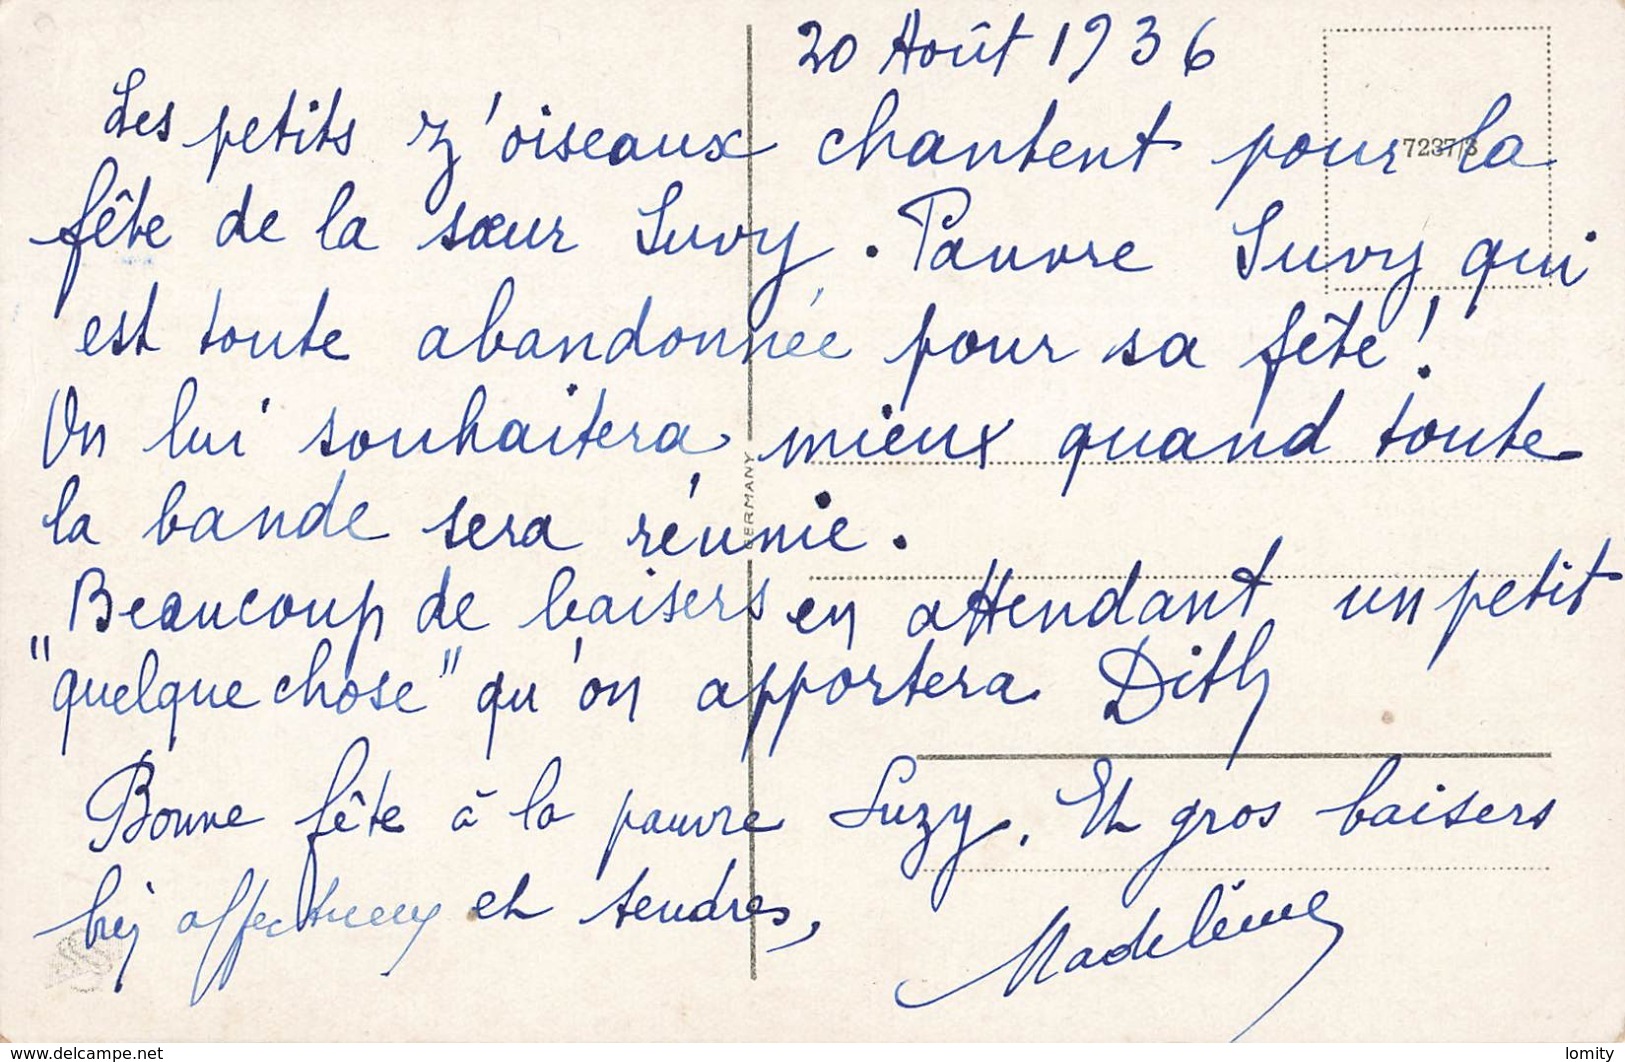 20 Août 1936
Les petits z'oiseaux chantent pour la
7237/3
fête de la sœur Suvy. Pauvre Suvy qui
est toute abandonnée pour sa fête!
On lui souhaitera mieux quand toute
la bande sera réunie.
GERMANY
Beaucoup de baisers en attendant un petit
"quelque chose" qu'on apportera Dith
Bonne fête à la pauvre Suzy. Et gros baisers
bien affectueux et tendres,
Madeleine
www.delcampe.net
lomity